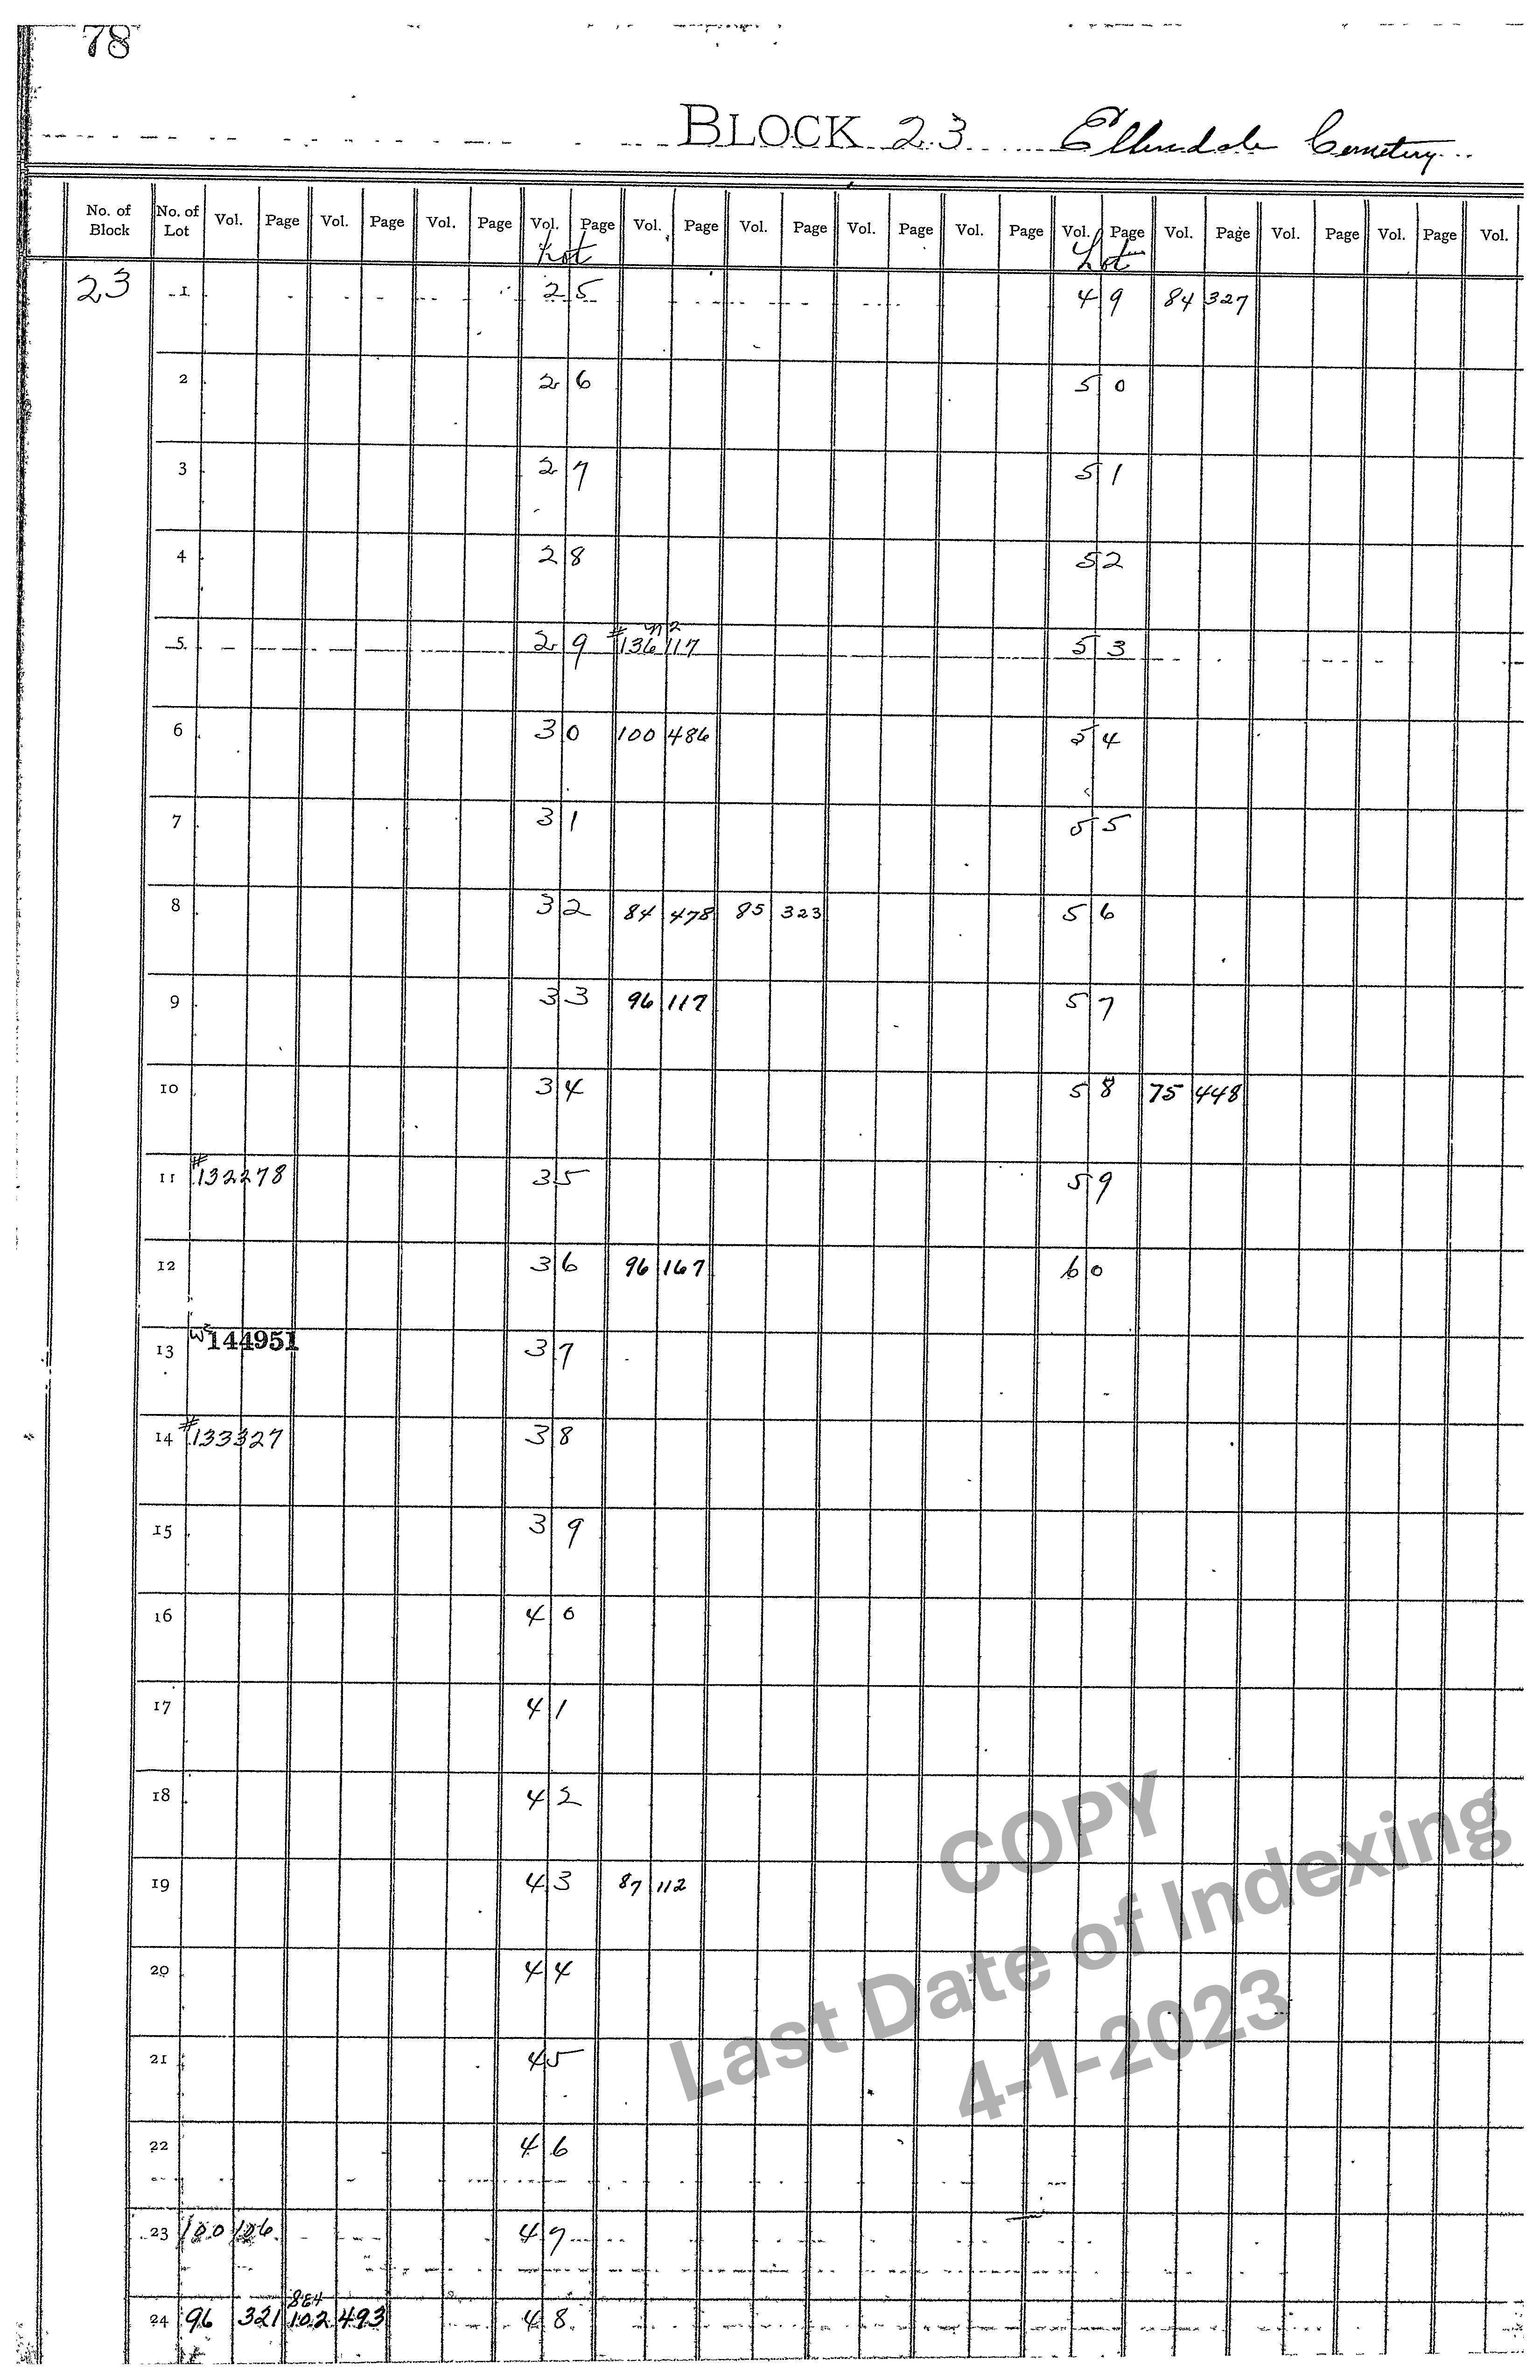 78
BLOCK 23 Ellendale Cemetery
No. of Block No. of Lot Vol. Page Vol. Page Vol. Page Vol. Page Vol. Page Vol. Page Vol. Page Vol. Page Vol. Page Vol. Page Vol. Page Vol. Page Vol.
Lot Lot
23 1 25 49 84 327
2 26 50
3 27 51
4 28 52
5 29 #136117 53
6 30 100 486 54
7 31 55
8 32 84 478 85 323 56
9 33 96 117 57
10 34 58 75 448
11 #132278 35 59
12 36 96 167 60
13 W2 144951 37
14 #133327 38
15 39
16 40
17 41
18 42
19 43 87 112
20 44
21 45
22 46
23 100 106 47
24 96 321 102 493 48
COPY
Last Date of Indexing
4-1-2023